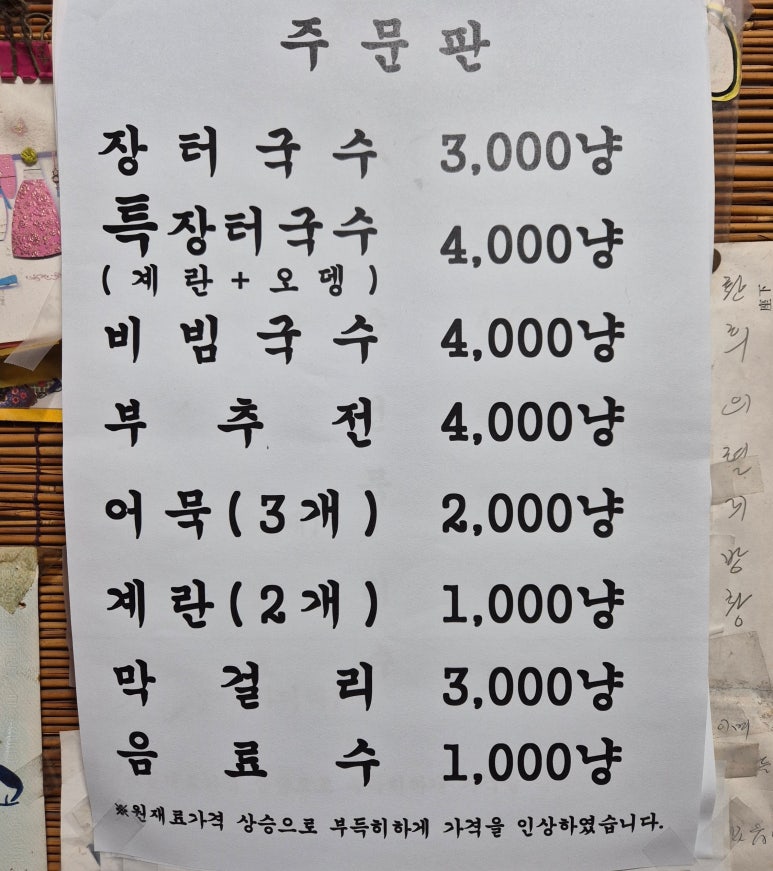 주문판
장터국수 3,000냥
특장터국수 4,000냥
(계란+오뎅)
비빔국수 4,000냥
부추전 4,000냥
어묵(3개) 2,000냥
계란(2개) 1,000냥
막걸리 3,000냥
음료수 1,000냥
※원재료가격 상승으로 부득히하게 가격을 인상하였습니다.
座下